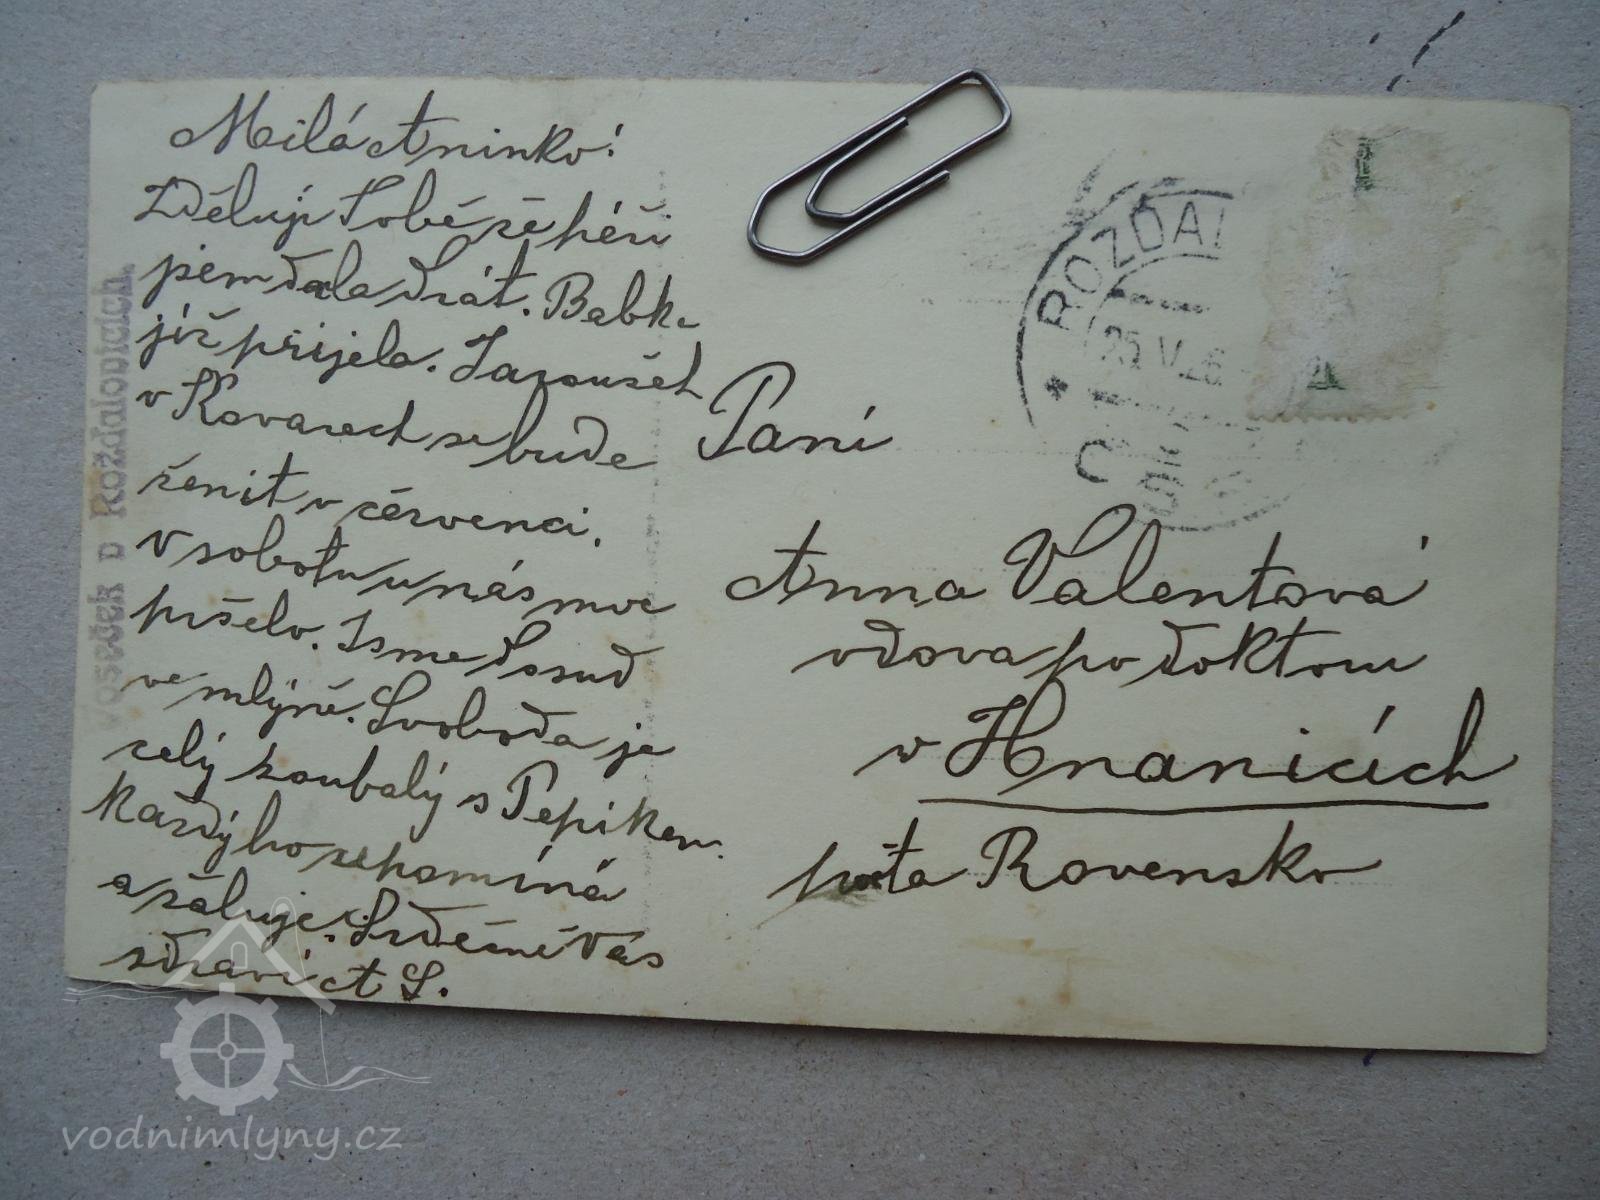 Milá Aninko!
Zděluji Tobě že péři
jsem dala drát. Babka
již přijela. Jaroušek
v Kovarech se bude
ženit v červenci.
V sobotu u nás moc
pršelo. Jsme dosud
ve mlýně. Svoboda je
celý zoubalý s Pepikem.
Každý ho
a žaluje. Srdečně Vás
zdraví A S.
Vosecek v Rozdalovicích.
ROZDAL
25.V.26
Paní
Anna Valentová
vdova po doktoru
v Hnanicích
pošta Rovensko
vodnimlyny.cz